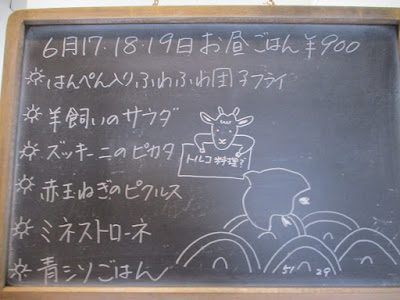 6月17・18・19日お昼ごはん¥900
はんぺん入りふわふわ団子フライ
羊飼いのサラダ
トルコ料理?
ズッキーニのピカタ
赤玉ねぎのピクルス
ミネストローネ
青シソごはん